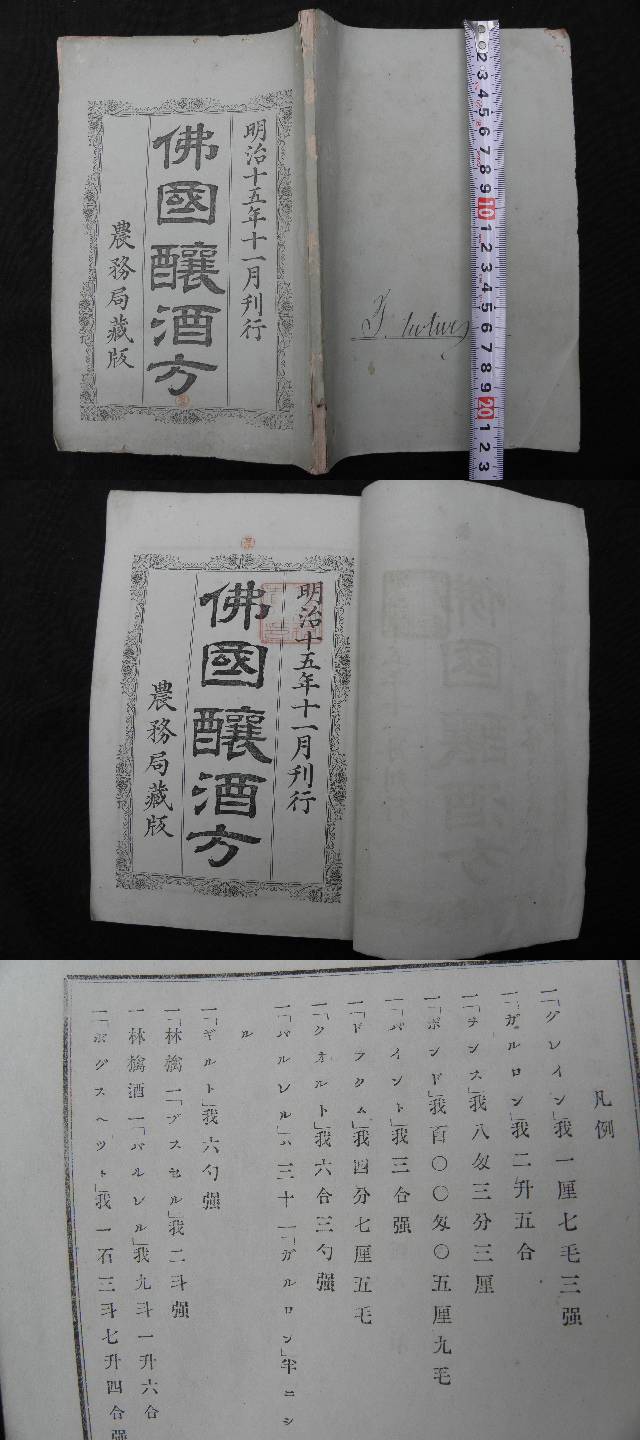 明治十五年十一月刊行
佛國釀酒方
農務局藏版
2 3 4 5 6 7 8 9 10 1 2 3 4 5 6 7 8 9 20 1 2 3
明治十五年十一月刊行
佛國釀酒方
農務局藏版
凡例
一「グレイン」我一厘七毛三强
一「ガルロン」我二升五合
一「ヲンス」我八匁三分三厘
一「ポンド」我百〇〇匁〇五厘九毛
一「パイント」我三合强
一「ドラクム」我四分七厘五毛
一「クオルト」我六合三勺强
一「バルレル」ハ三十一「ガルロン」半ニシ
ル
一「ギルト」我六勺强
一「林檎一「ブスセル」我二斗强
一林檎酒一「バルレル」我九斗一升六合
一「ホグスヘット」我一石三斗七升四合强